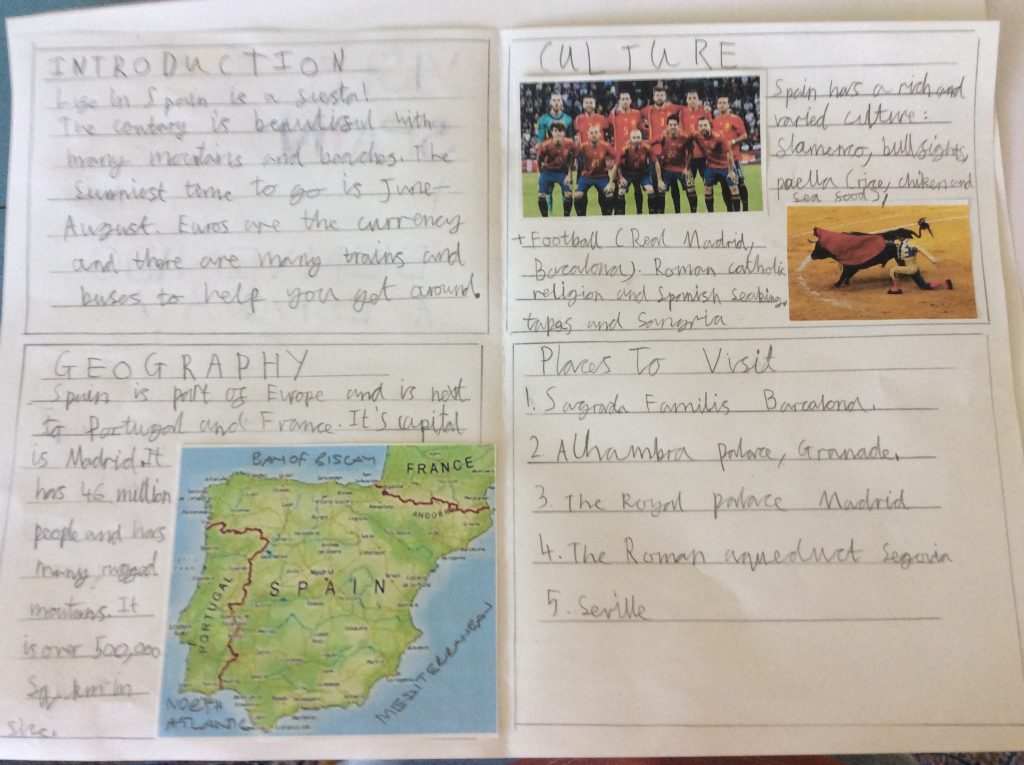 INTRODUCTION
Life in Spain is a siesta!
The contary is beautiful with
many mountains and beaches. The
sunniest time to go is June-
August. Euros are the currency
and there are many trains and
buses to help you get around.
CULTURE
Spain has a rich and
varied culture:
flamenco, bullfights,
paella (rice, chiken and
sea food),
+ Football (Real Madrid,
Barcalona). Roman catholic
religion and Spanish seaking,
tapas and Sangria
GEOGRAPHY
Spain is part of Europe and is next
to Portugal and France. It's capital
is Madrid. It
has 46 million
people and has
many rugged
moutains. It
is over 500,000
Sq km in
size.
BAY OF BISCAY
FRANCE
ANDORRA
SPAIN
PORTUGAL
Madrid
MEDITERRANEAN
NORTH
ATLANTIC
Places To Visit
1. Sagrada Familis Barcalona.
2 Alhambra palace, Granade.
3. The Royal palace Madrid
4. The Roman aqueduct Segovia
5. Seville